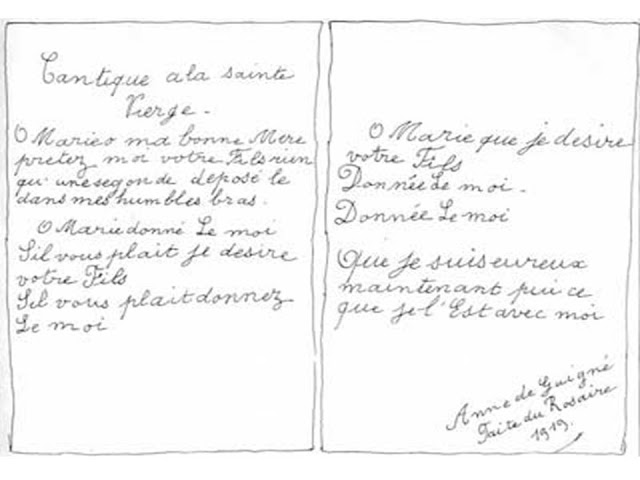 Cantique a la sainte
Vierge -
O Marie o ma bonne Mere
pretez moi votre Fils rien
qu'une segonde déposé le
dans mes humbles bras.
O Marie donné Le moi
Sil vous plait je desire
votre Fils
Sil vous plait donnez
Le moi
O Marie que je desire
votre Fils
Donnée Le moi -
Donnée Le moi
Que je suis eureux
maintenant pui ce
que je l'Est avec moi
Anne de Guigné
Faite du Rosaire
1919.